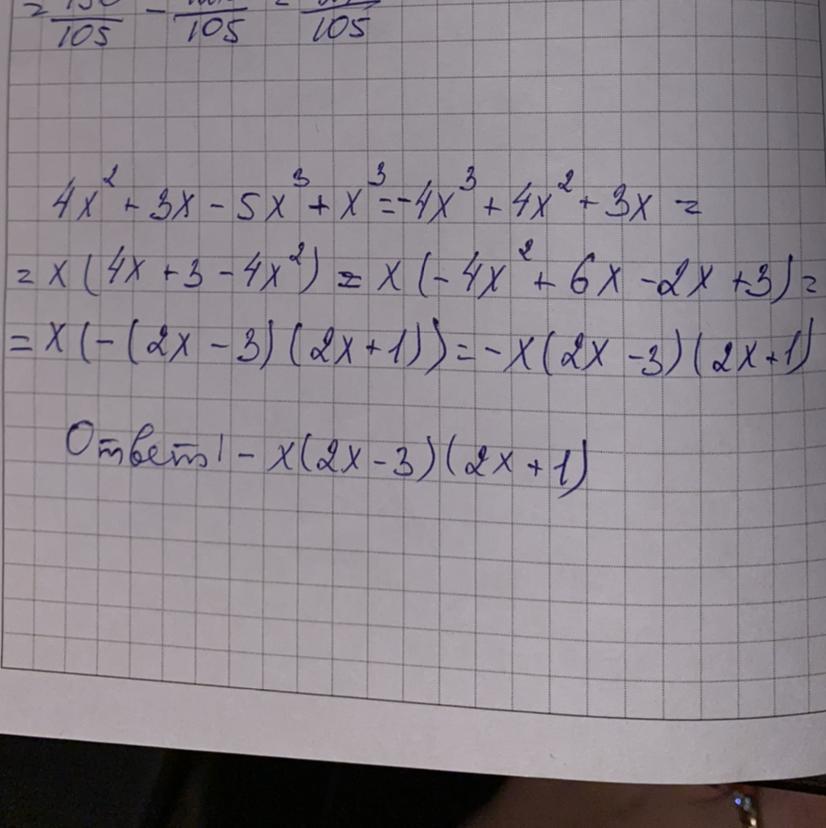 = /105 - /105 = /105
4x² + 3x - 5x³ + x³ = -4x³ + 4x² + 3x =
= x(4x + 3 - 4x²) = x(-4x² + 6x - 2x + 3) =
= x(-(2x - 3)(2x + 1)) = -x(2x - 3)(2x + 1)
Ответ: - x(2x - 3)(2x + 1)